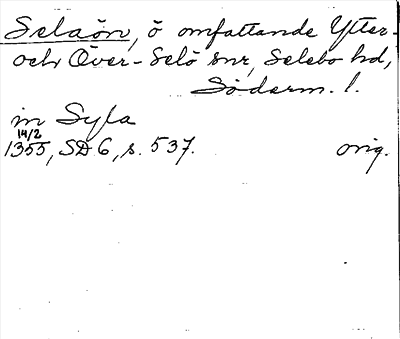 Selaön, ö omfattande Ytter-
och Över-Selö snr, Selebo hd,
Söderm. l.
in Syla
14/2
1355, SD 6, s. 537. orig.